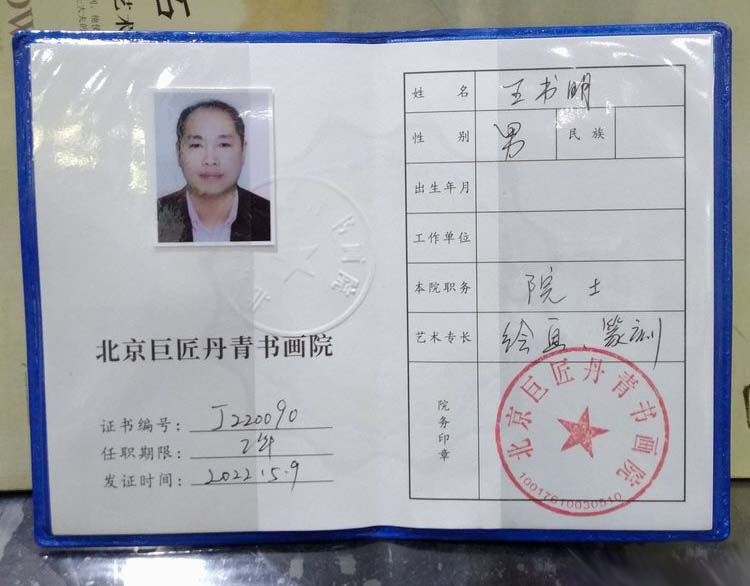 北京巨匠丹青书画院
证书编号：J220090
任职期限：2年
发证时间：2022.5.9
姓 名 王书明
性 别 男 民 族
出生年月
工作单位
本院职务 院士
艺术专长 绘画、篆刻
院务印章
北京巨匠丹青书画院
10017610030510